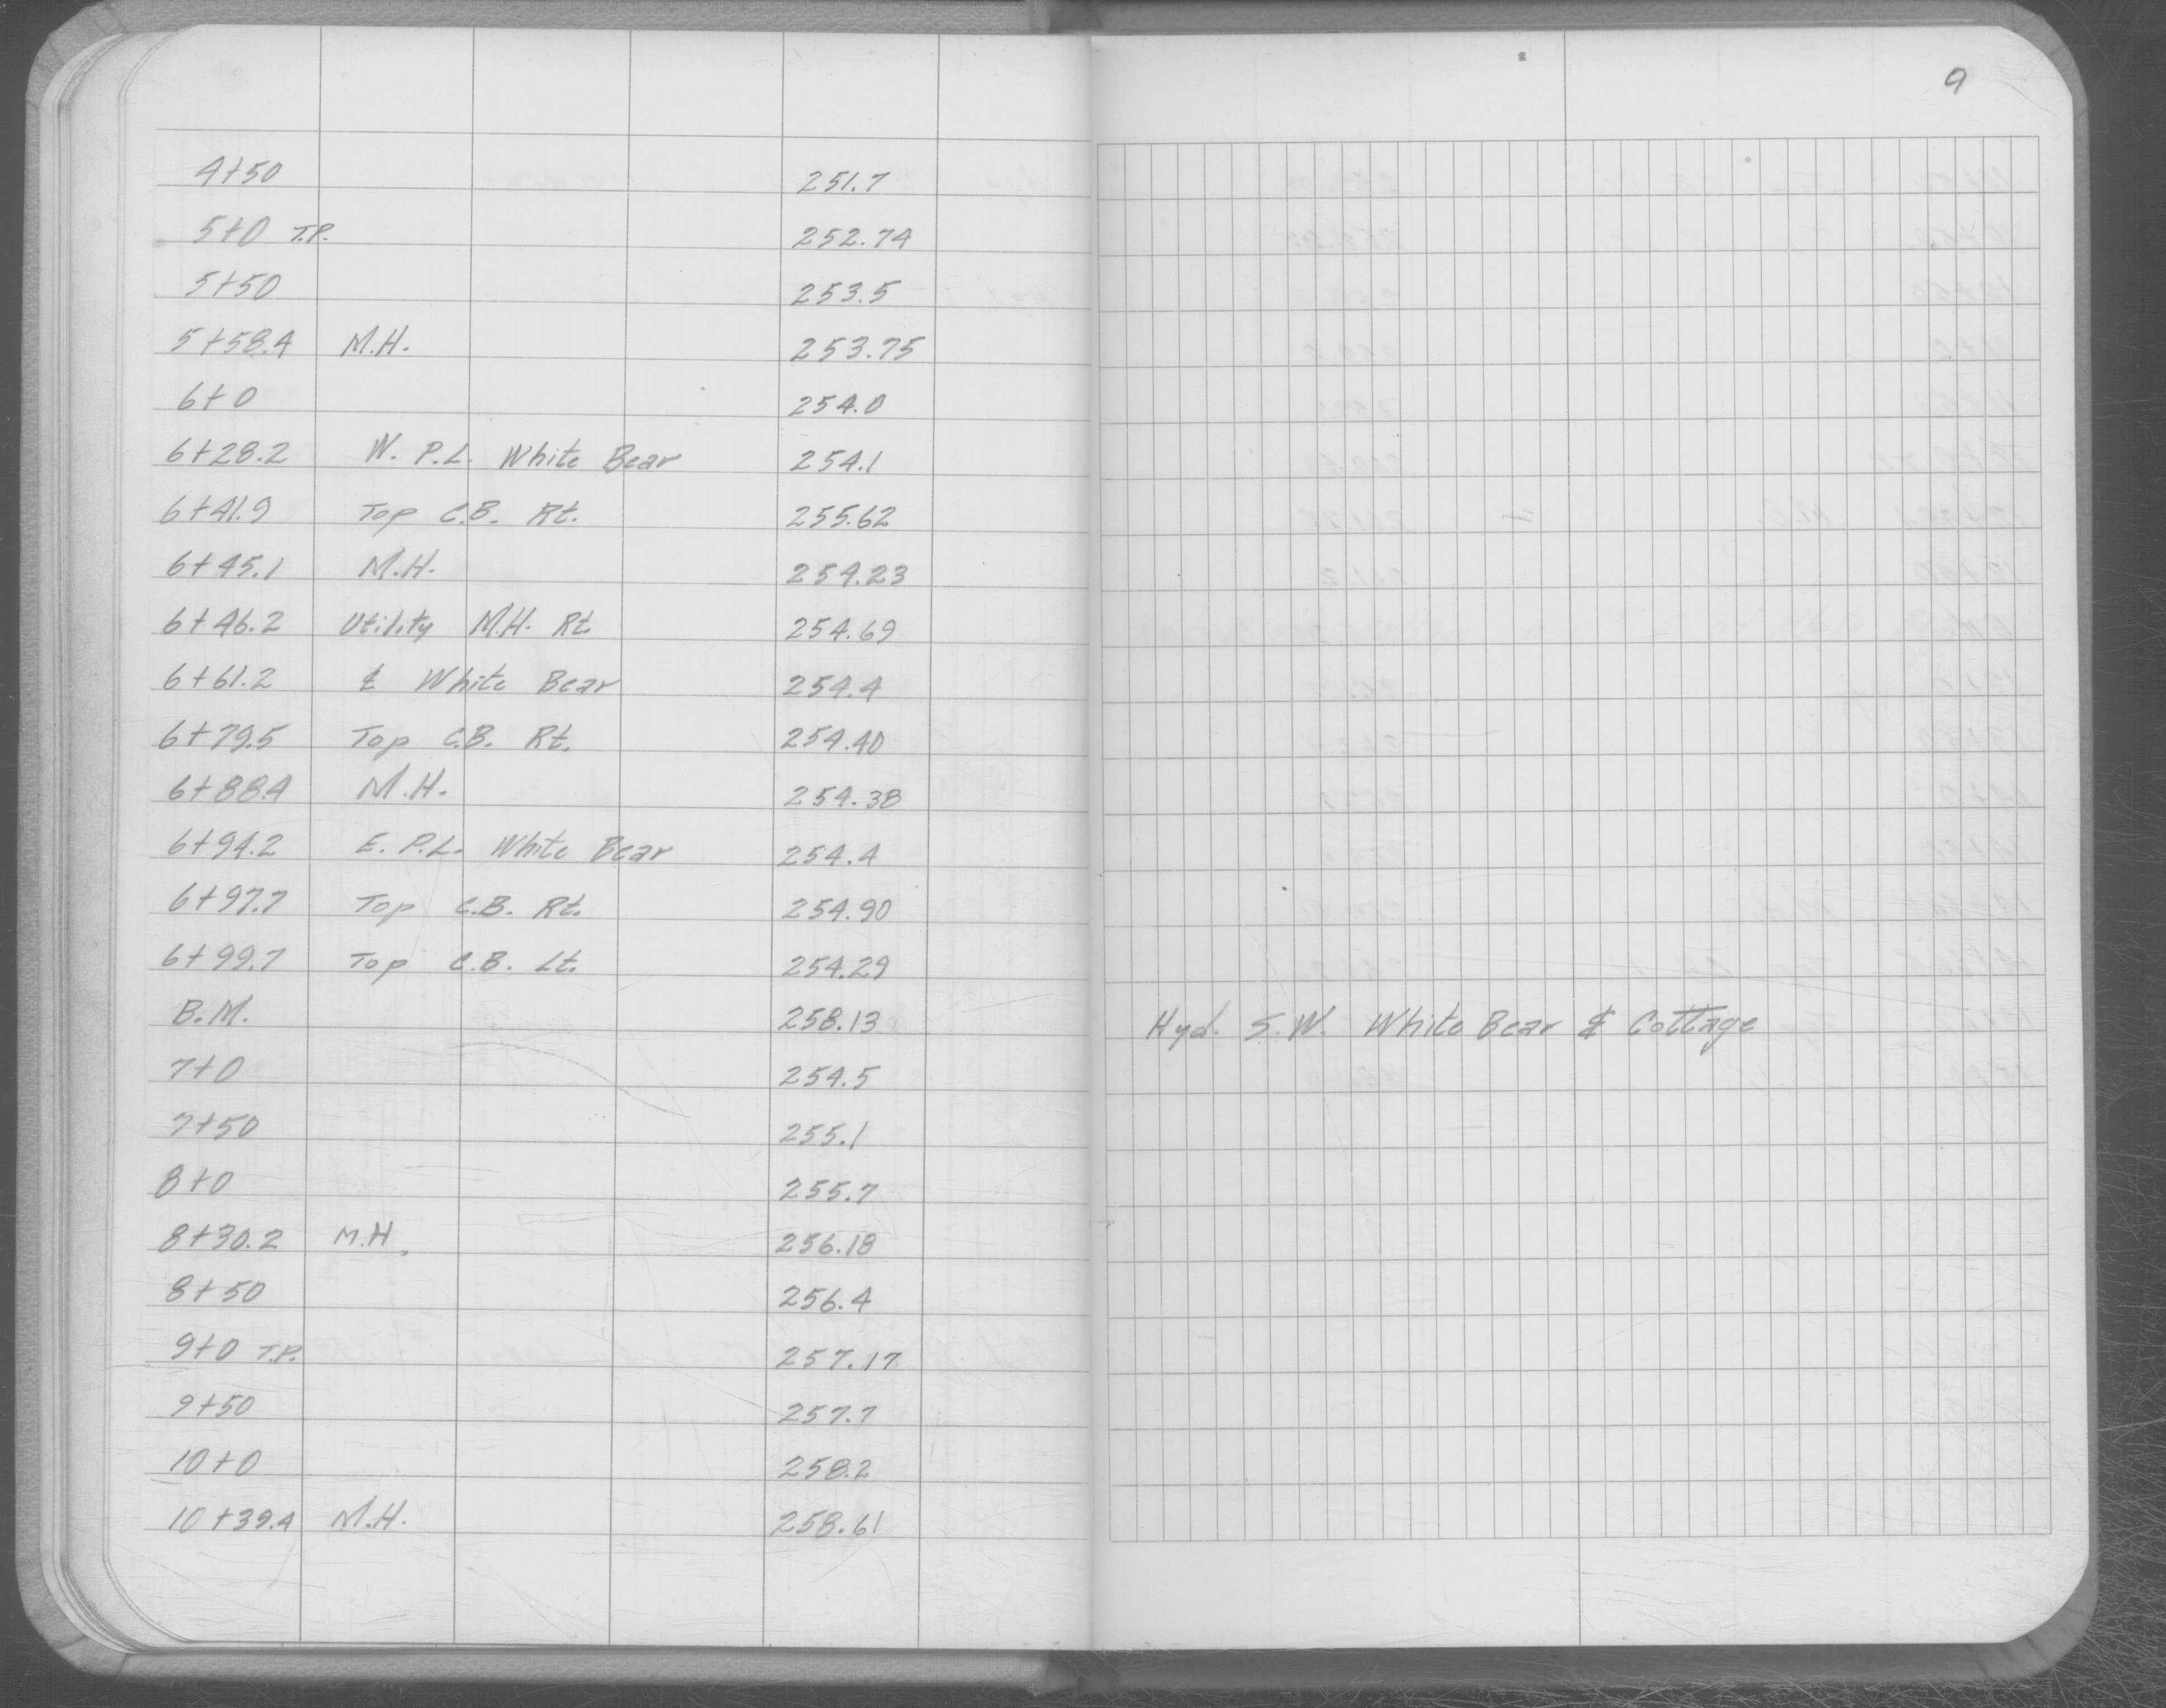 9
4+50 251.7
5+0 T.P. 252.74
5+50 253.5
5+58.4 M.H. 253.75
6+0 254.0
6+28.2 W. P.L. White Bear 254.1
6+41.9 Top C.B. Rt. 255.62
6+45.1 M.H. 254.23
6+46.2 Utility M.H. Rt. 254.69
6+61.2 ℄ White Bear 254.4
6+79.5 Top C.B. Rt. 254.40
6+88.4 M.H. 254.38
6+94.2 E. P.L. White Bear 254.4
6+97.7 Top C.B. Rt. 254.90
6+99.7 Top C.B. Lt. 254.29
B.M. 258.13 Hyd. S.W. White Bear & Cottage
7+0 254.5
7+50 255.1
8+0 255.7
8+30.2 M.H. 256.18
8+50 256.4
9+0 T.P. 257.17
9+50 257.7
10+0 258.2
10+39.4 M.H. 258.61